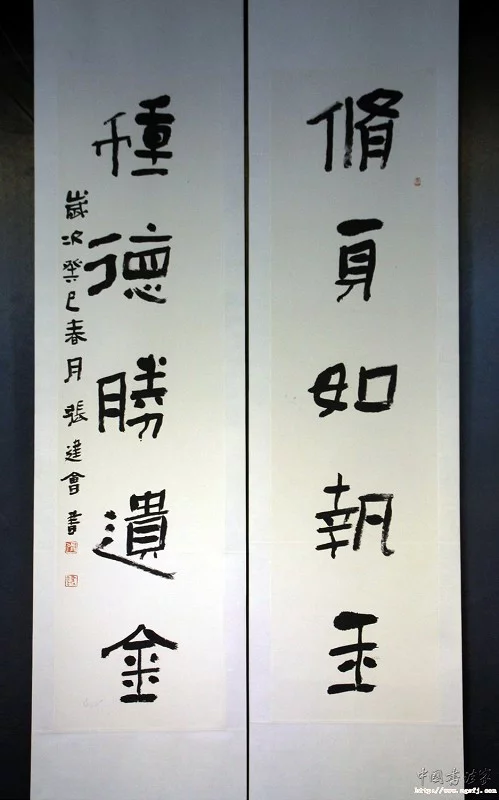 脩身如執玉
種德勝遺金
歲次癸巳春月張建會書
中国书法家
https://www.zgsfj.com